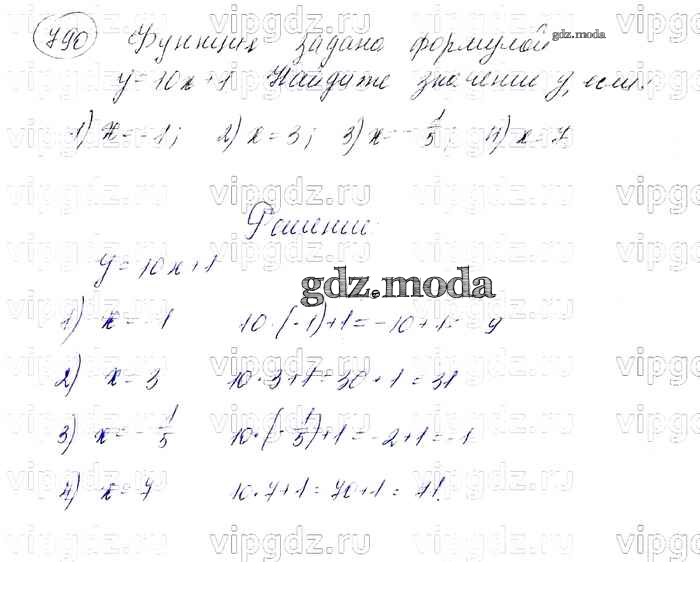 790 Функция задана формулой
y=10x+1 Найдите значение y, если:
1) x=-1; 2) x=3; 3) x=-1/5; 4) x=7
Решение
y=10x+1
gdz.moda
1) x=-1 10·(-1)+1=-10+1=-9
2) x=3 10·3+1=30+1=31
3) x=-1/5 10·(-1/5)+1=-2+1=-1
4) x=7 10·7+1=70+1=71.
gdz.moda
vipgdz.ru